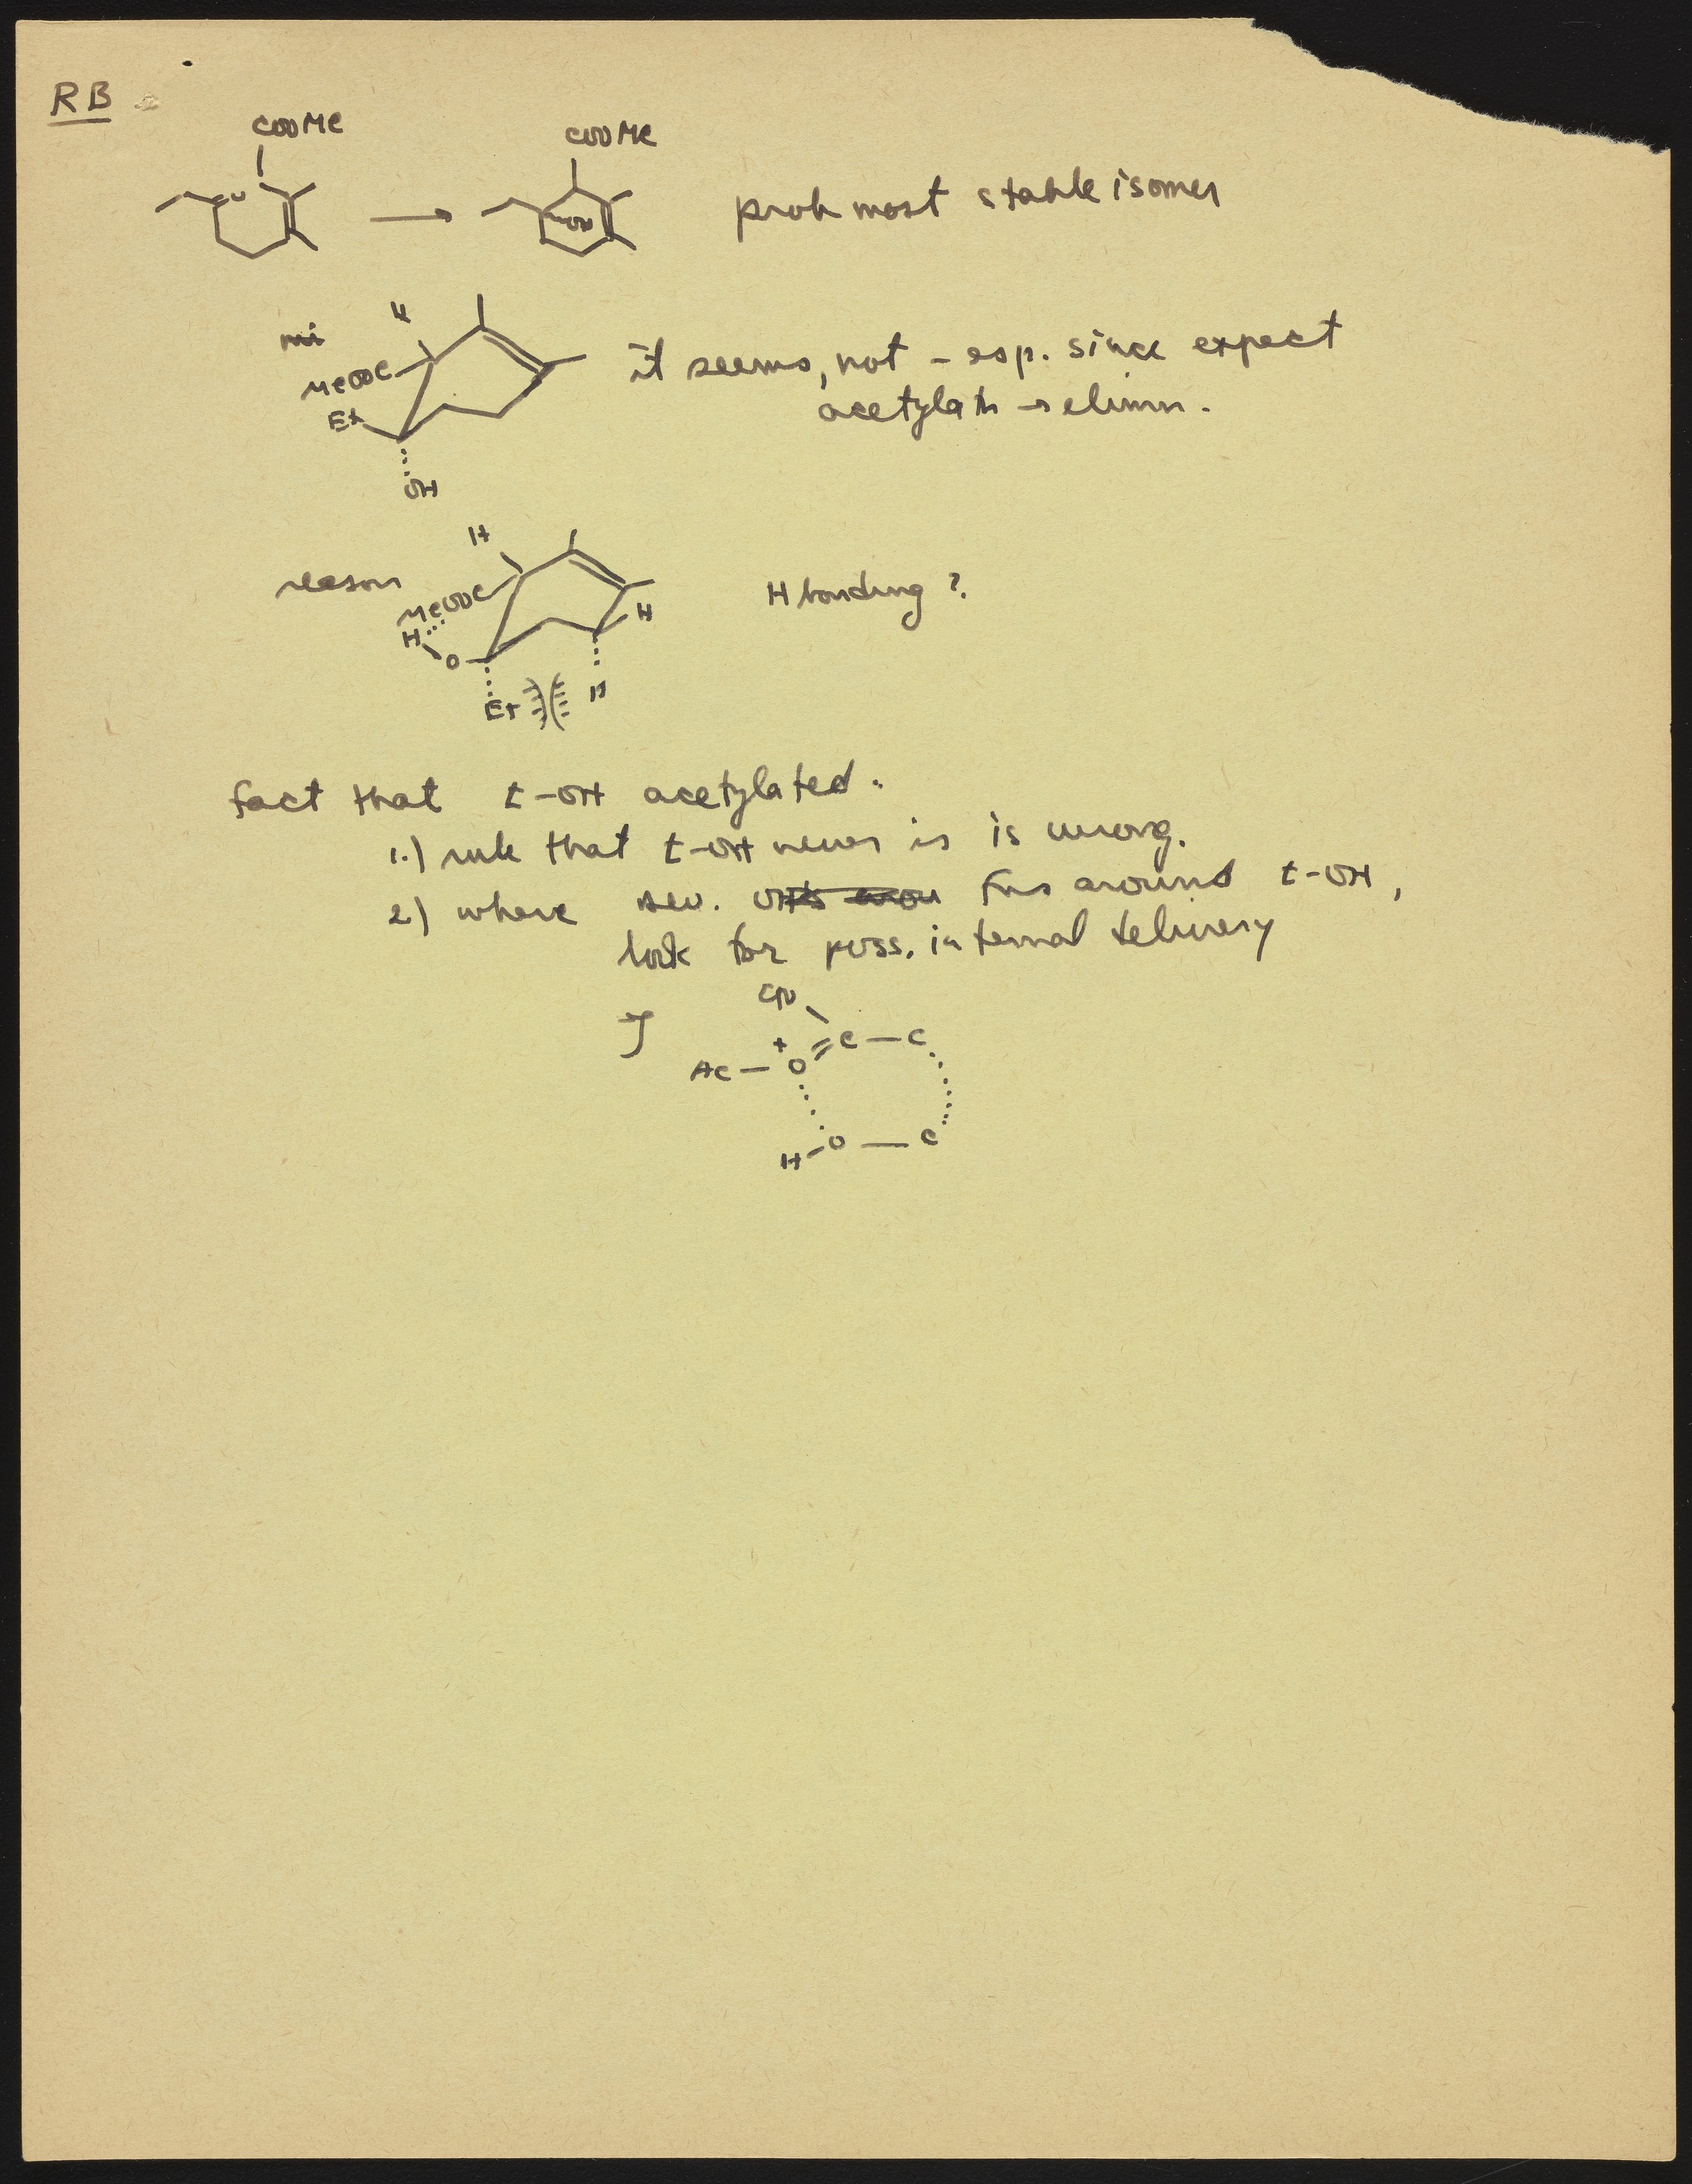 RB
COOMe
COOMe
prob most stable isomer
H
MeOOC
Et
OH
it seems, not - esp. since expect
acetylatn → elimn.
reason
H
MeOOC
H
O
H
Et
H
H bonding ?
fact that t-OH acetylated:
1.) rule that t-OH never is is wrong.
2) where sev. OH's fns around t-OH,
look for poss. internal delivery
+
Ac - O = C - C
H - O - C